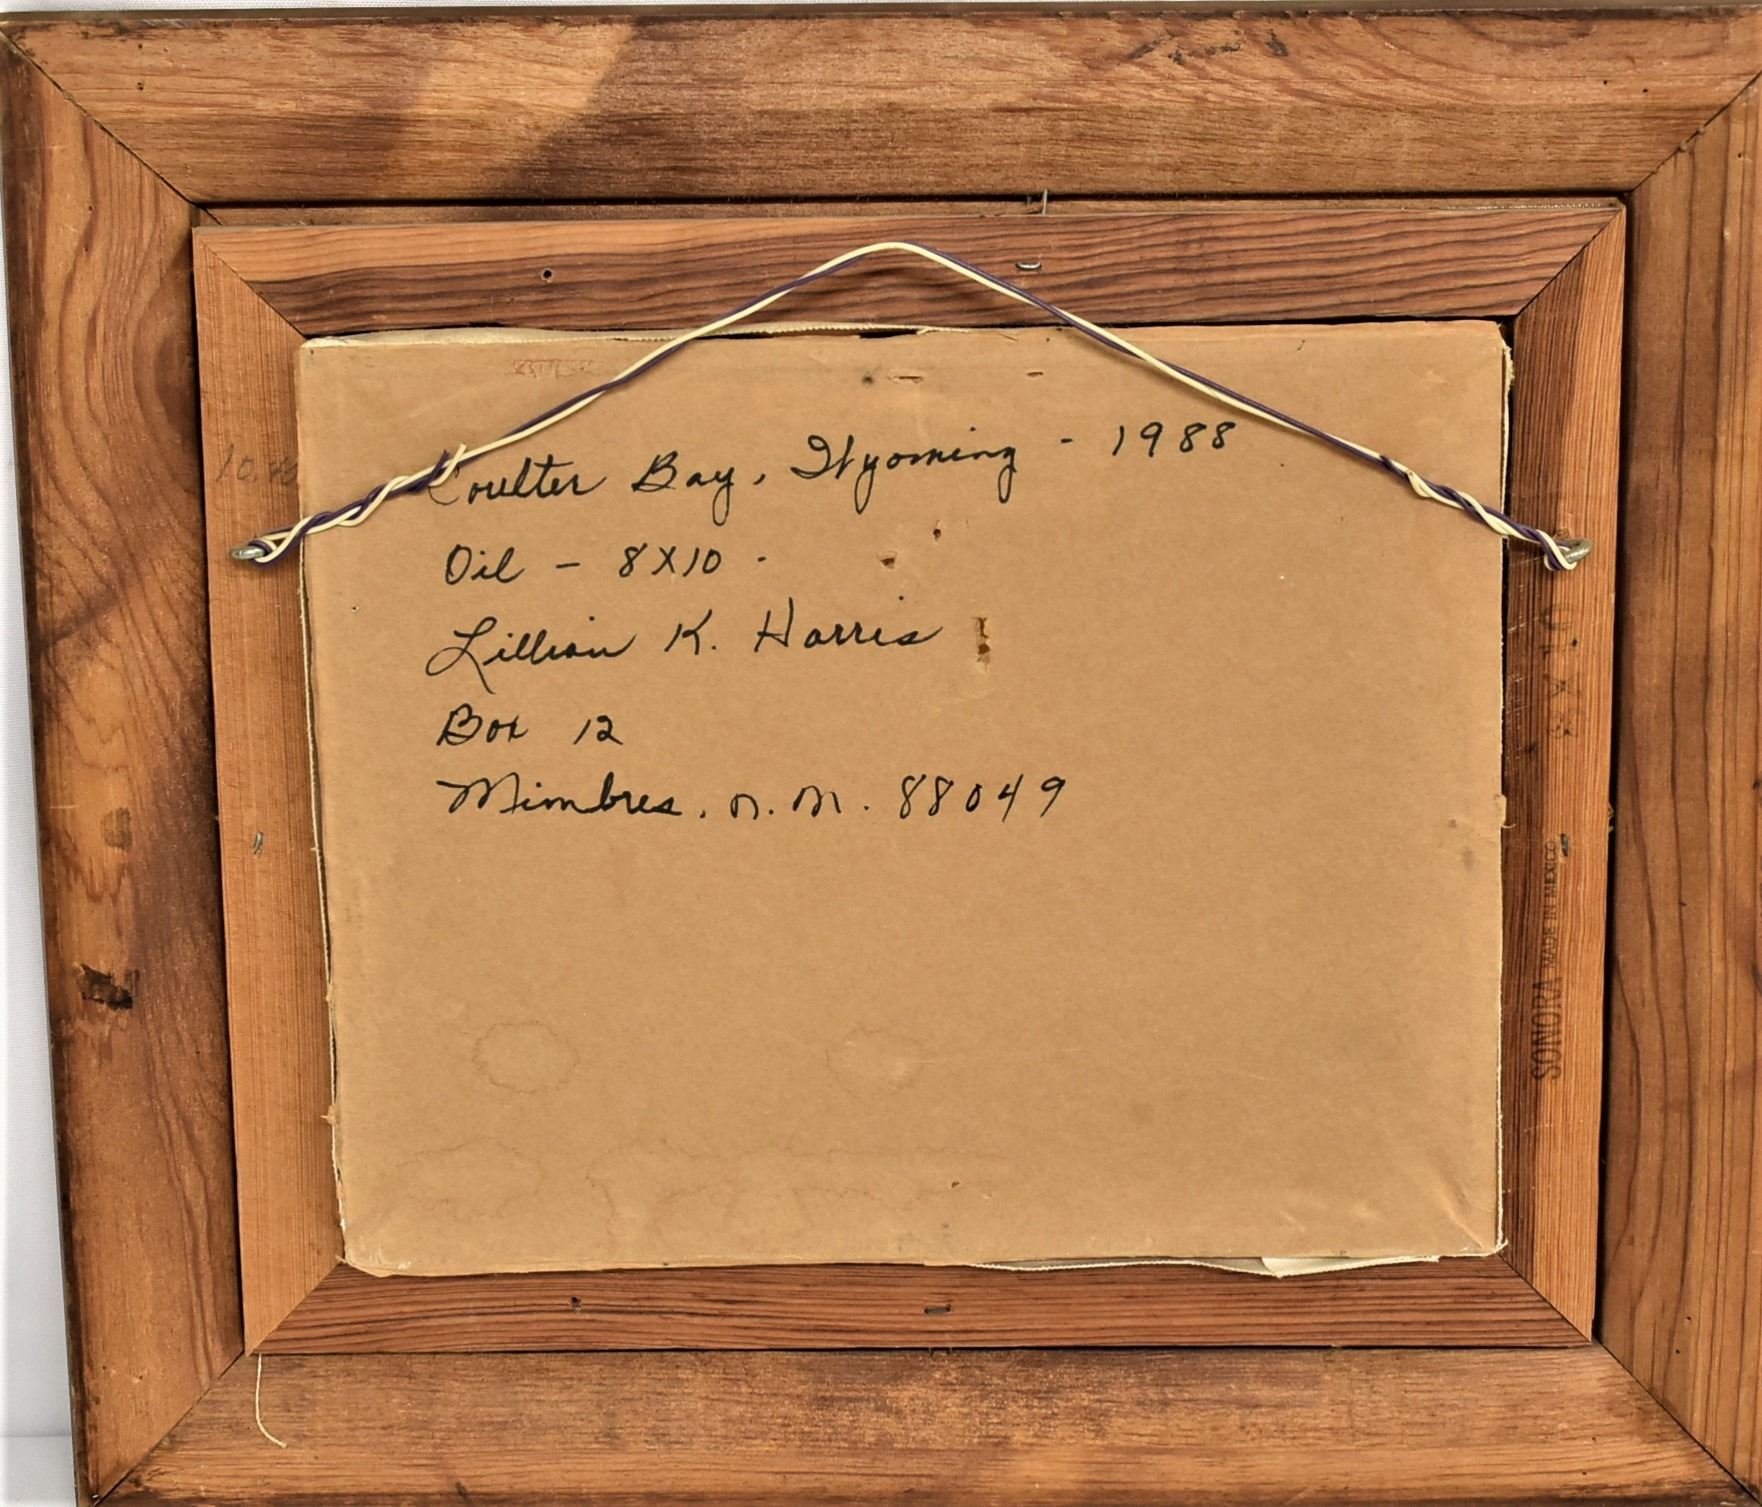 Coulter Bay, Wyoming - 1988
Oil - 8X10 -
Lillian K. Harris
Box 12
Mimbres, n.m. 88049
8 X 10
SONORA MADE IN MEXICO